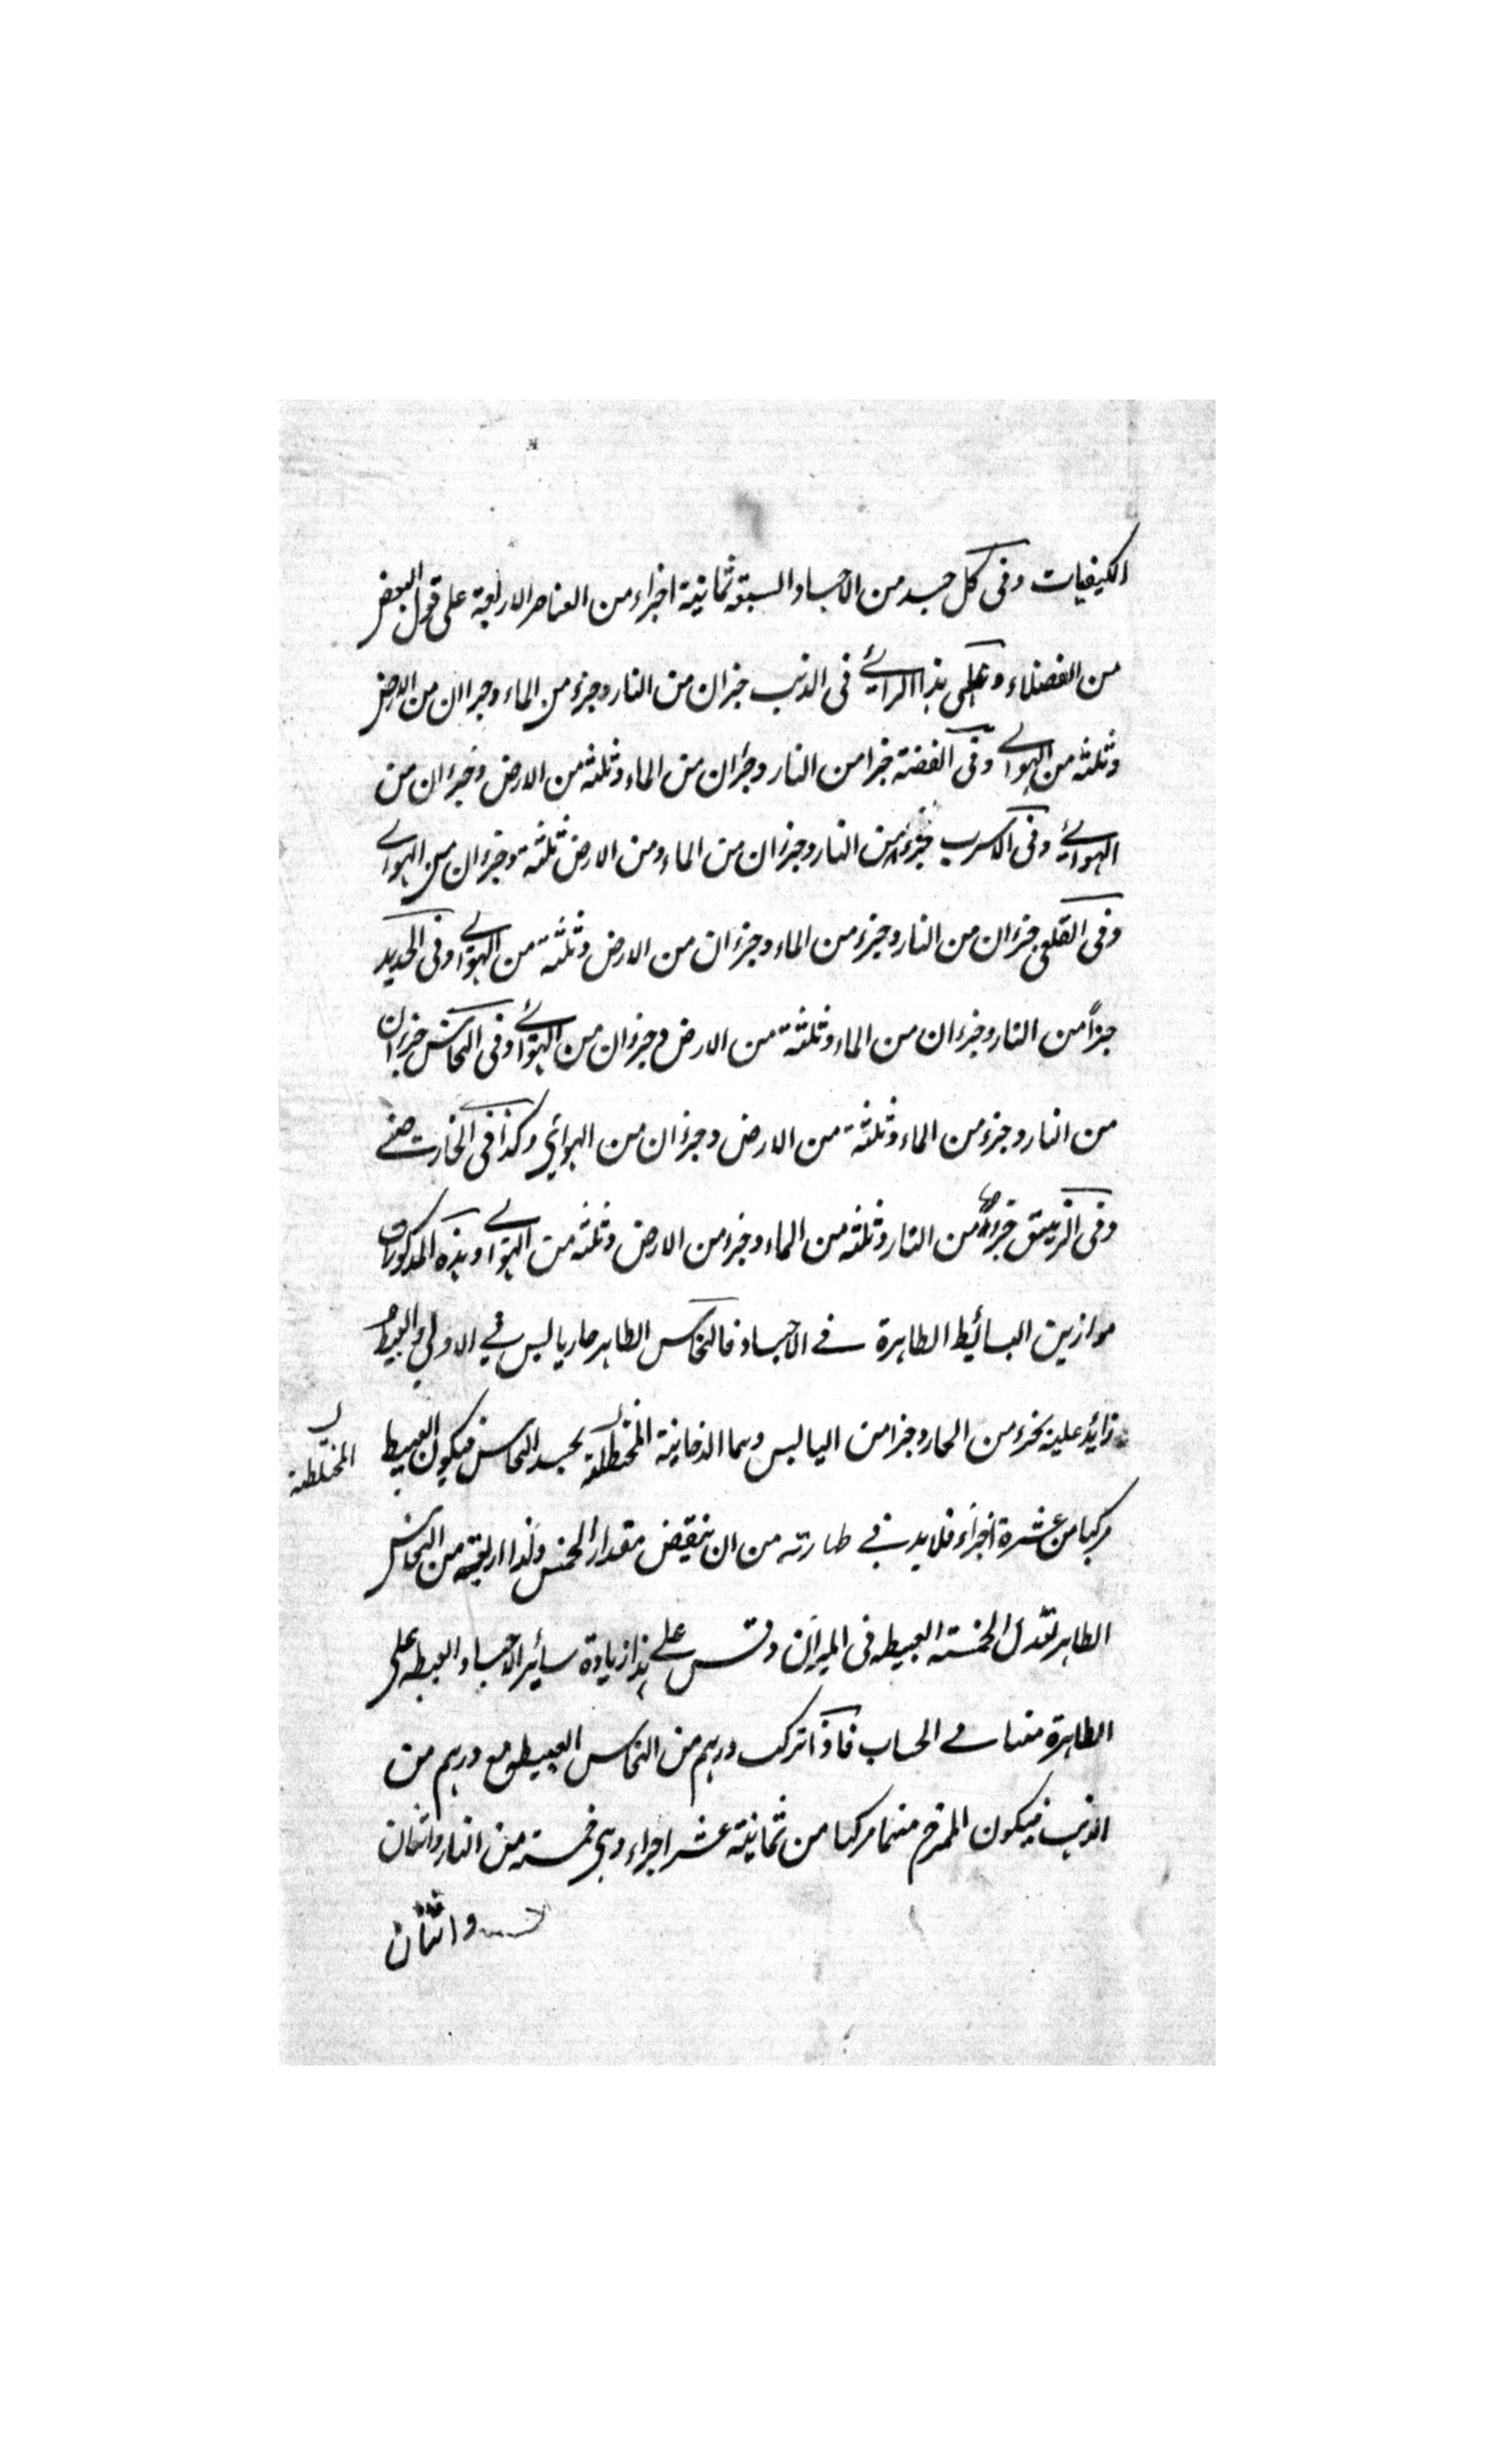 الكيفيات وفى كل جسد من الاجساد السبعة ثمانية اجزاء من العناصر الاربعة على قول البعض
من الفضلاء وعلى هذا الرائے فى الذهب جزان من النار وجزء من الماء وجزاان من الارض
وثلثة من الهوائے وفى الفضة جزا من النار وجزان من الماء وثلثة من الارض وجزءان من
الهوائے وفى الاسرب جزء من النار وجزان من الماء ومن الارض ثلثة وجزءان من الهوائے
وفى القلعى جزءان من النار وجزء من الماء وجزءان من الارض وثلثة من الهوائے وفى الحديد
جزاً من النار وجزءان من الماء وثلثة من الارض وجزءان من الهوائے وفى النحاس جزءان
من النار وجزء من الماء وثلثة من الارض وجزءان من الهوائي وكذا فى الخارصنے
وفى الزيبق جزء من النار وثلثة من الماء وجزء من الارض وثلثة من الهوائے وهذه المذكورات
موازين البسائيط الطاهرة فے الاجساد فالنحاس الطاهر حار يابس فے الاولى والعبيط
زائد عليه بجزء من الحار وجزا من اليابس وهما الدخانية المختطلة بجسد النحاس فيكون العبيط
المختلطة
مركبا من عشرة اجزاء فلا بد فے طهارته من ان ينقض مقدار الخمس ولذا اربعة من النحاس
الطاهر تعدل الخمسة العبيطه فى الميزان وقس على هذا زيادة سائر الاجساد العبيطه على
الطاهرة منها فے الحساب فاذا تركب درهم من النحاس العبيط مع درهم من
الذهب فيكون الممتزج منهما مركبا من ثمانية عشر اجزاء وهى خمسة من النار واثنان
واثنان